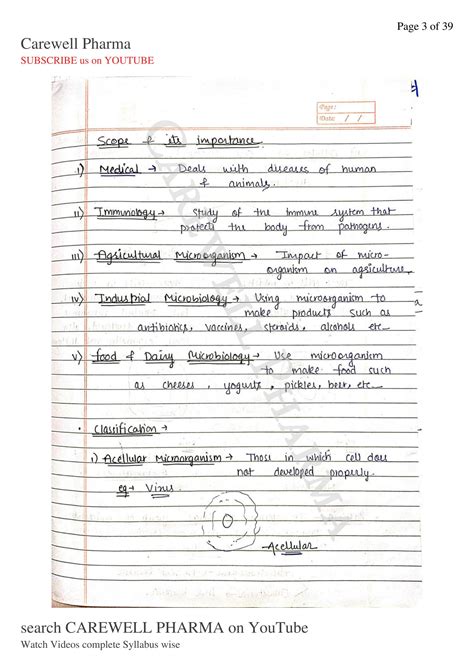 Page 3 of 39
Carewell Pharma
SUBSCRIBE us on YOUTUBE
Page:
Date / /
Scope & its importance
i) Medical → Deals with diseases of human
& animals.
ii) Immunology → Study of the immune system that
protects the body from pathogens.
iii) Agricultural Microorganism → Impact of micro-
organism on agriculture
iv) Industrial Microbiology → Using microorganism to
make products such as
antibiotics, vaccines, steroids, alcohols etc
v) food & Dairy Microbiology → Use microorganism
to make food such
as cheeses, yogurts, pickles, beer, etc
• Classification →
i) Acellular Microorganism → Those in which cell does
not developed properly.
eg → Virus.
Acellular
CAREWELL PHARMA
search CAREWELL PHARMA on YouTube
Watch Videos complete Syllabus wise